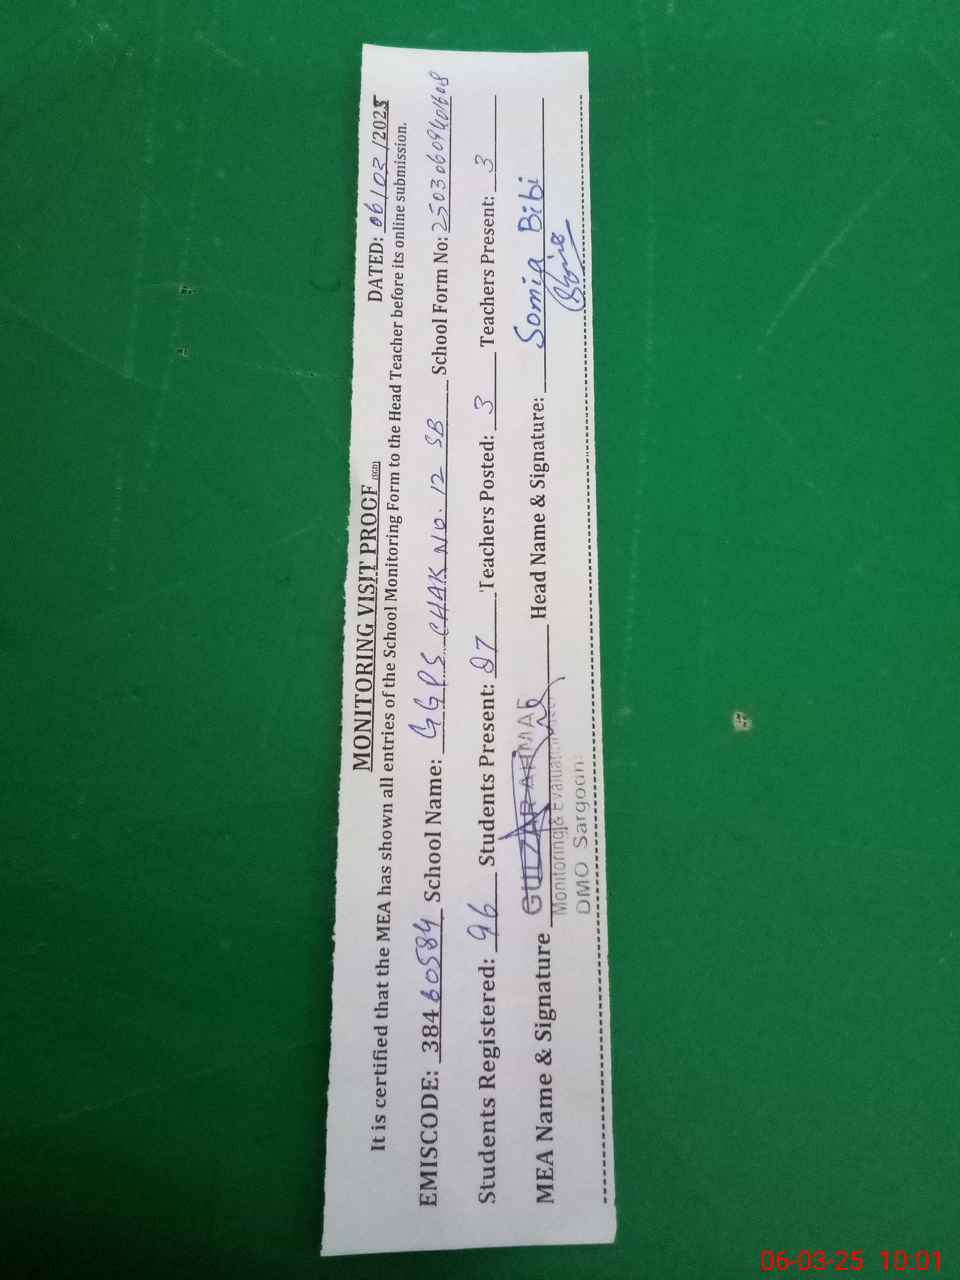 MONITORING VISIT PROOF (SGD)
DATED: 06/03/2025
It is certified that the MEA has shown all entries of the School Monitoring Form to the Head Teacher before its online submission.
EMISCODE: 38460584 School Name: GGPS CHAK NO. 12 SB School Form No: 25030609940608
Students Registered: 96 Students Present: 87 Teachers Posted: 3 Teachers Present: 3
MEA Name & Signature GULZAR AHMAD Head Name & Signature: Somia Bibi
Monitoring & Evaluation
DMO Sargodha
06-03-25 10:01